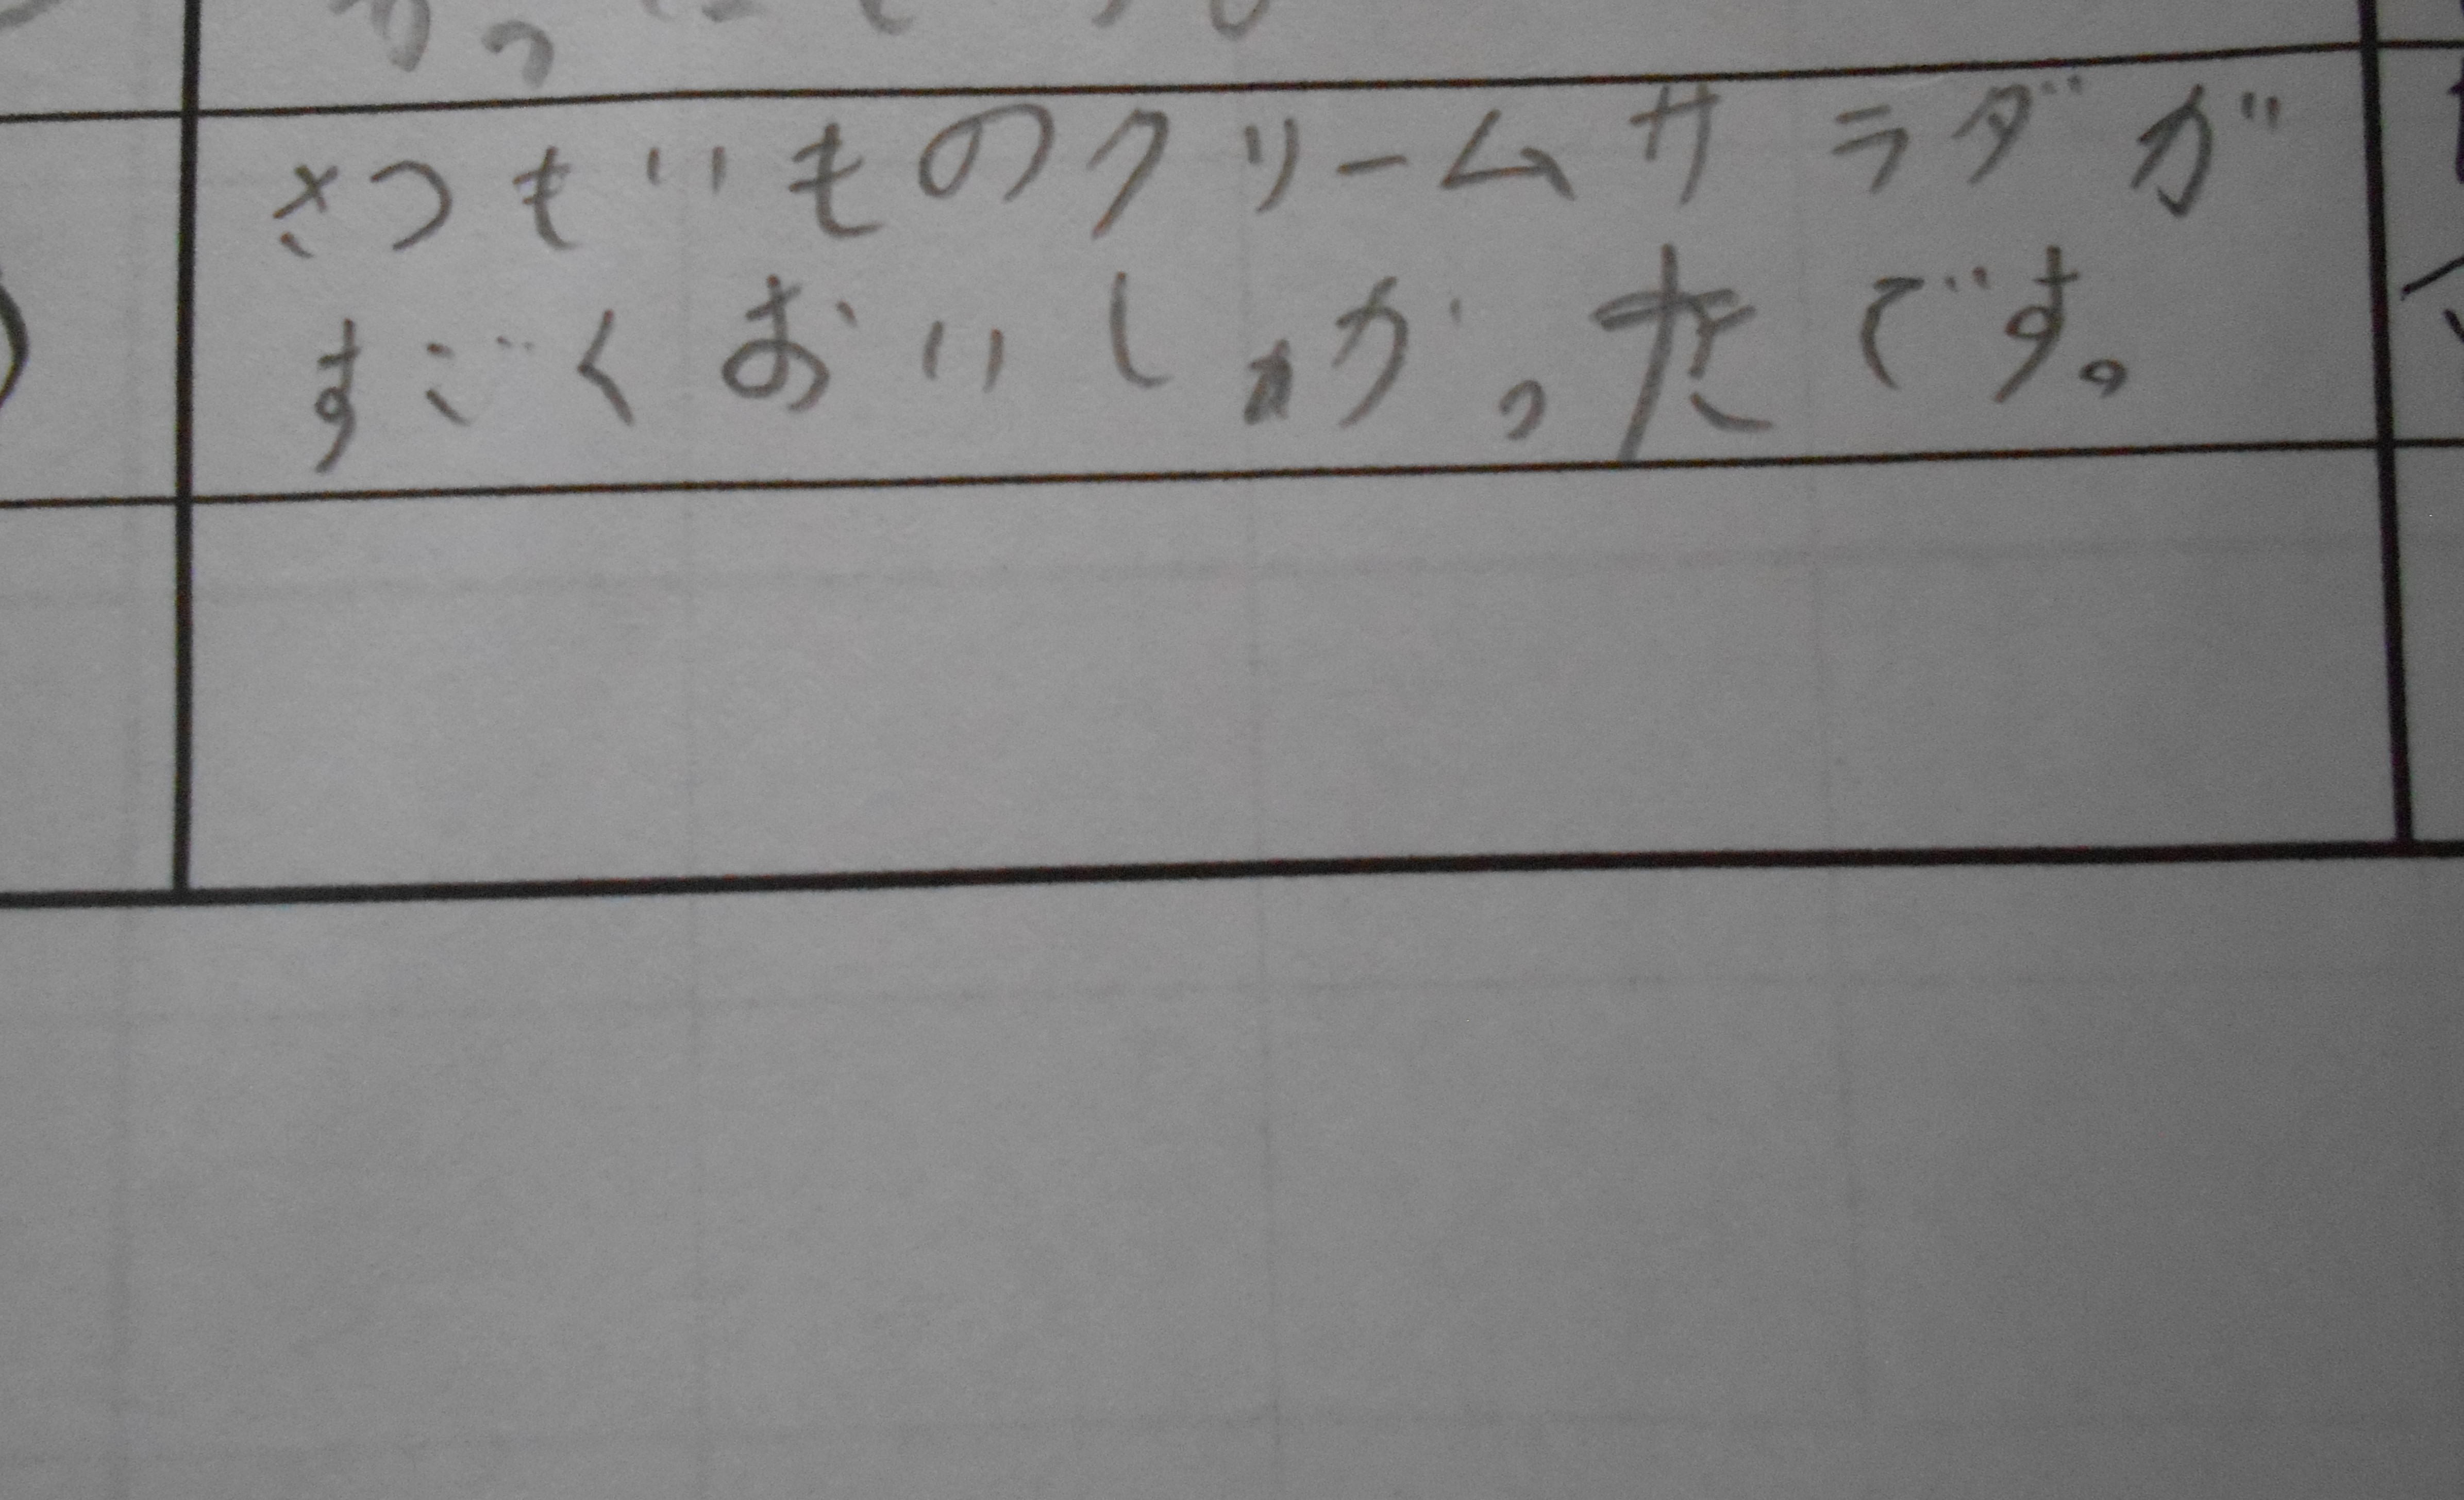 さつもいものクリームサラダが
すごくおいしかったです。